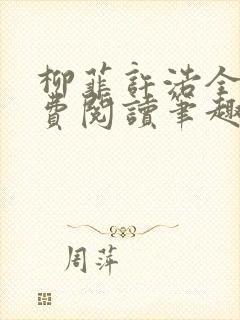 柳韮許浩全
費閱讀筆趣
周萍